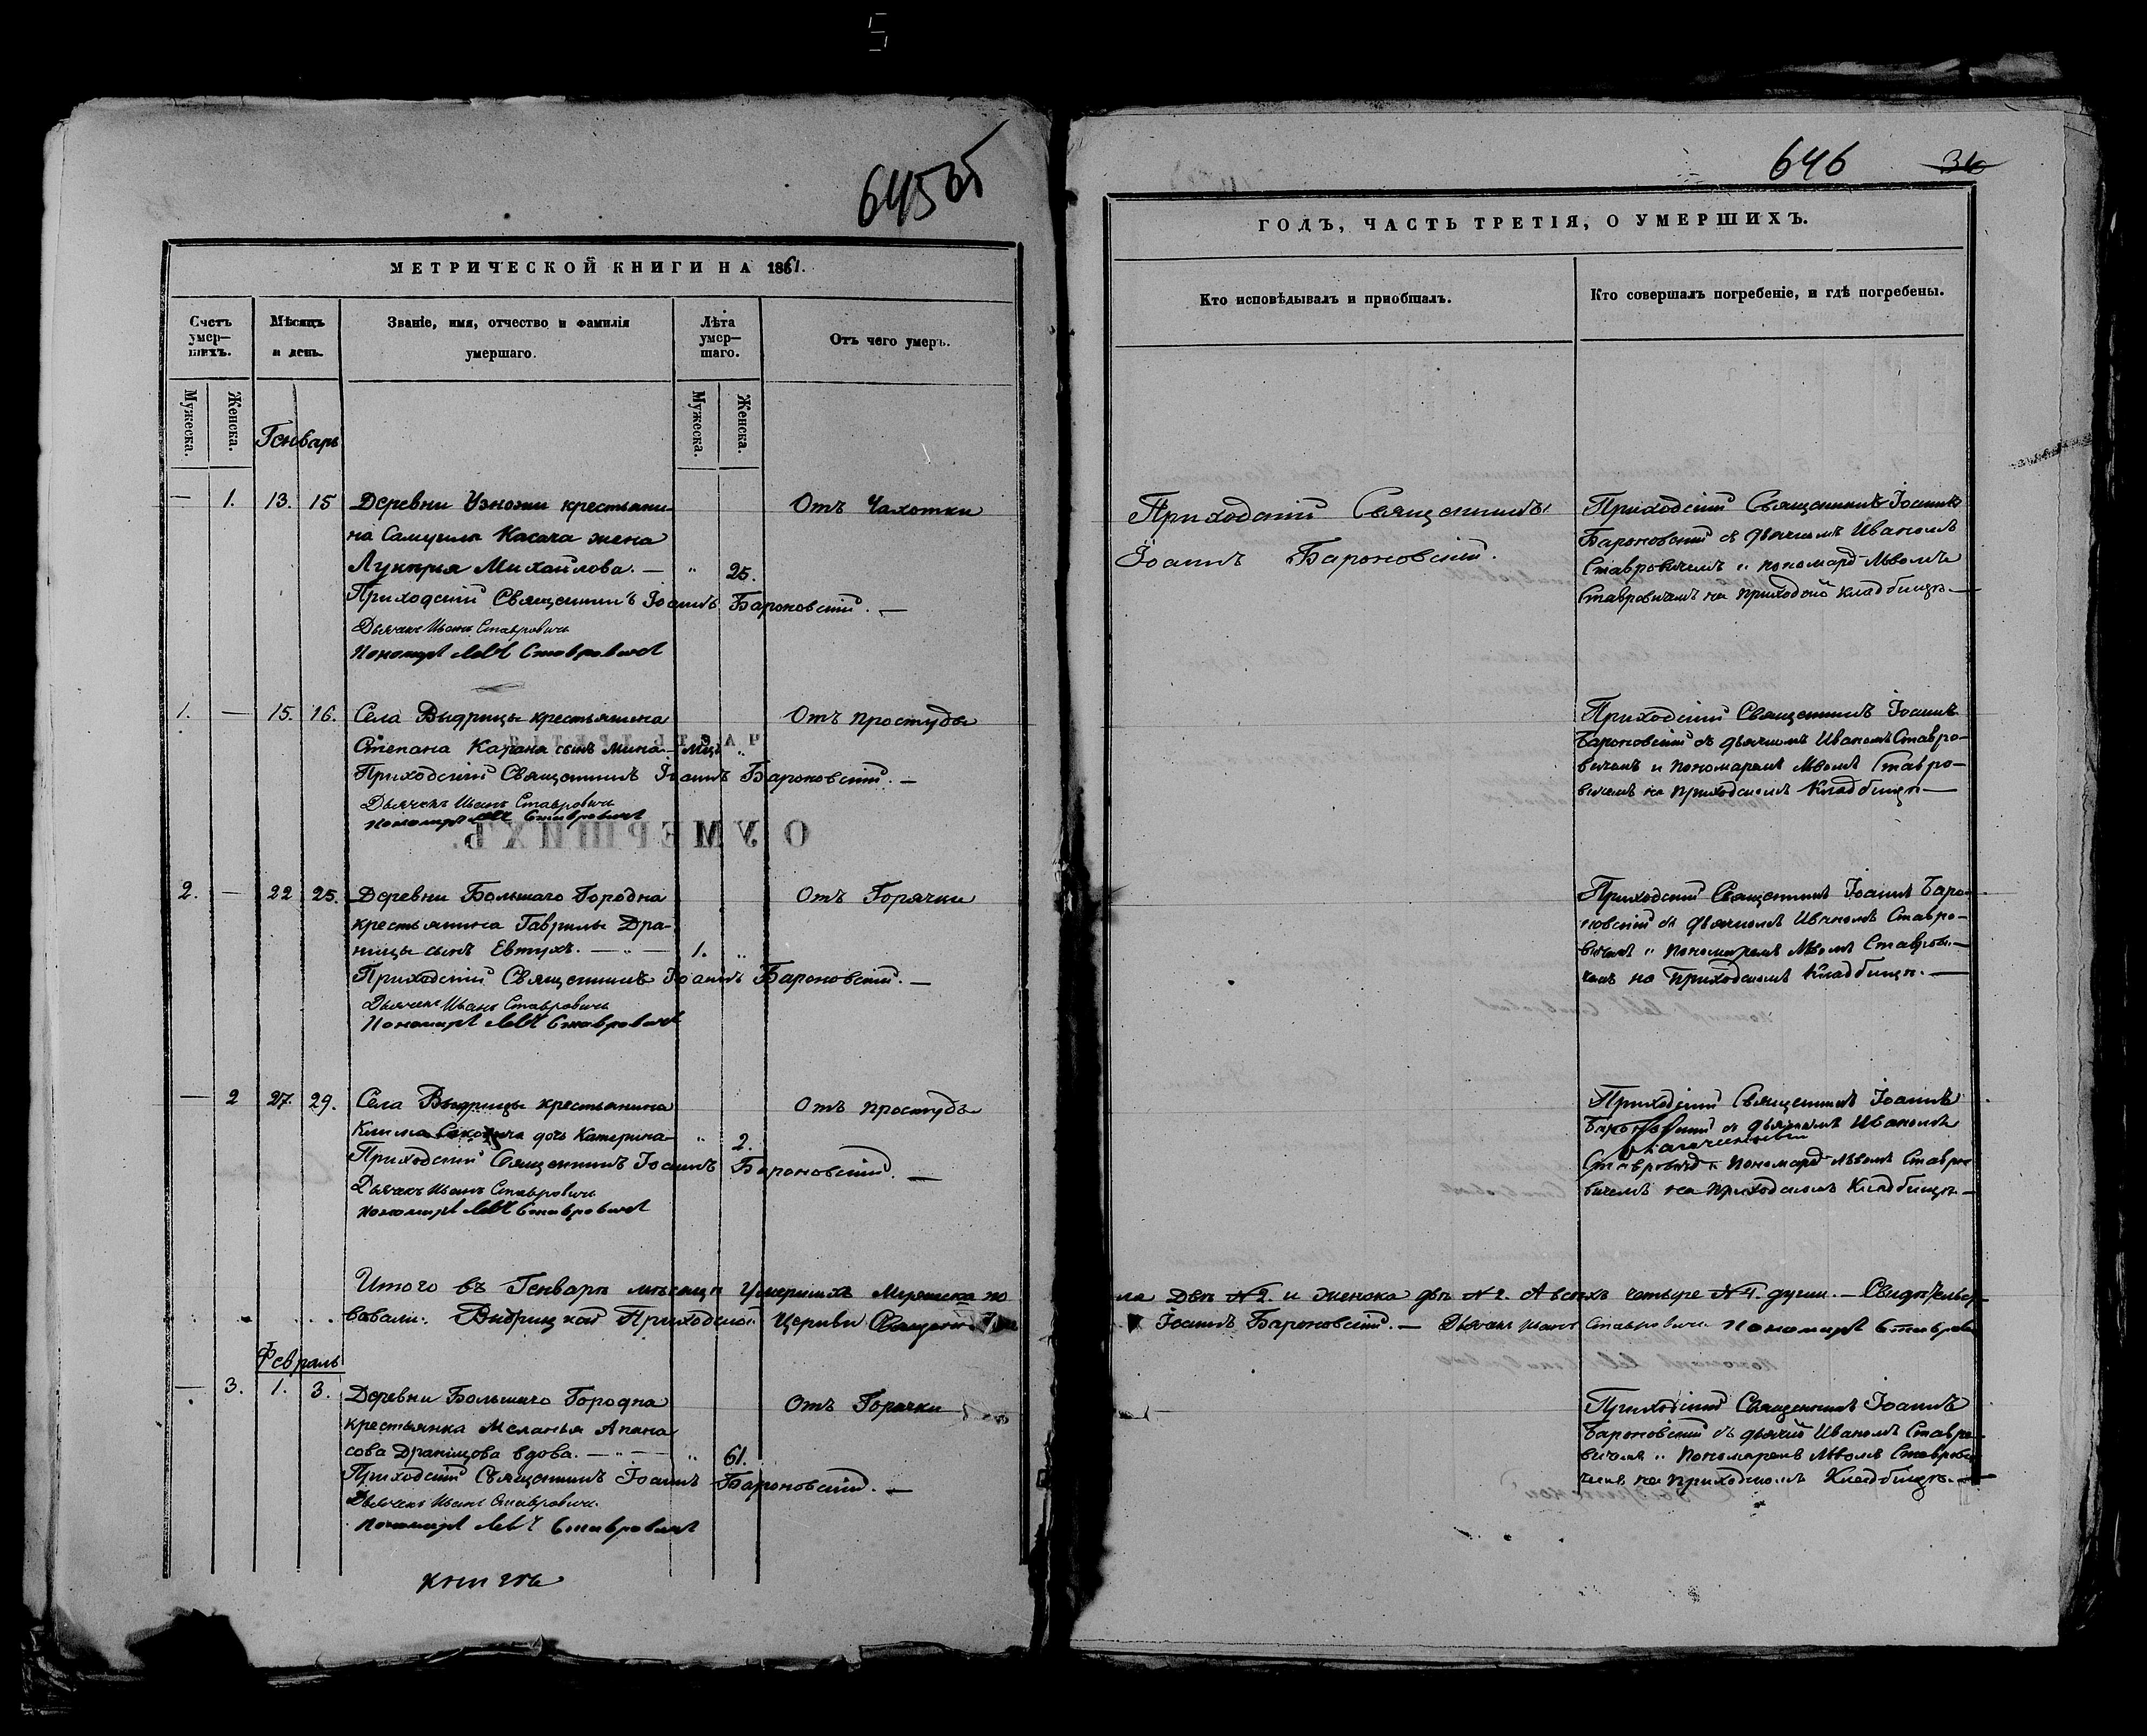 645 об
МЕТРИЧЕСКОЙ КНИГИ НА 1861.
Счетъ умер—шихъ.
Мѣсяцъ и день.
Званіе, имя, отчество и фамилія умершаго.
Лѣта умер—шаго.
Отъ чего умеръ.
Мужеска.
Женска.
Генварь
Мужеска.
Женска.
— 1. 13. 15 Деревни Узножи крестьяни- Отъ Чахотки
на Самуила Касача жена
Лукерья Михайлова. — " 25.
Приходскій Священникъ Іоаннъ Бароновскій. —
Дьячекъ Иванъ Ставровичъ
Пономарь Левъ Ставровичъ
1. — 15. 16. Села Выдрицы крестьянина Отъ простуды
Степана сынъ Мина — мѣц. "
Приходскій Священникъ Іоаннъ Бароновскій. —
Дьячекъ Иванъ Ставровичъ
Пономарь Левъ Ставровичъ
2. — 22 25. Деревни Большаго Городна Отъ Горячки
крестьянина Гаврилы Дра-
ницы сынъ Евтухъ. — " — 1. "
Приходскій Священникъ Іоаннъ Бароновскій. —
Дьячекъ Иванъ Ставровичъ
Пономарь Левъ Ставровичъ
— 2 27. 29. Села Выдрицы крестьянина Отъ простуды
Клима дочь Катерина — " 2.
Приходскій Священникъ Іоаннъ Бароновскій. —
Дьячекъ Иванъ Ставровичъ
Пономарь Левъ Ставровичъ
Итого въ Генварѣ мѣсяцѣ Умершихъ Мужеска по
вовали: Выдрицкой Приходской Церкви Священникъ
Февраль
— 3. 1. 3. Деревни Большаго Городна Отъ Горячки
крестьянка Меланья Апана
сова Драницова вдова. — " — " 61.
Приходскій Священникъ Іоаннъ Бароновскій. —
Дьячекъ Иванъ Ставровичъ
Пономарь Левъ Ставровичъ
646 36
ГОДЪ, ЧАСТЬ ТРЕТІЯ, О УМЕРШИХЪ.
Кто исповѣдывалъ и приобщалъ.
Кто совершалъ погребеніе, и гдѣ погребены.
Приходскій Священникъ
Іоаннъ Бароновскій.
Приходскій Священникъ Іоаннъ
Бароновскій съ дьячкомъ Иваномъ
Ставровичемъ и пономарё Львомъ
Ставровичемъ на приходско кладбищѣ —
Приходскій Священникъ Іоаннъ
Бароновскій съ дьячкомъ Иваномъ Ставро—
вичемъ и пономаремъ Львомъ Ставро—
вичемъ на приходскомъ Кладбищѣ —
Приходскій Священникъ Іоаннъ Баро—
новскій съ дьячкомъ Иваномъ Ставро—
вичемъ и пономаремъ Львомъ Ставрови—
чемъ на Приходскомъ Кладбищѣ. —
Приходскій Священникъ Іоаннъ
Бароновскій съ дьячкомъ Иваномъ
Ставровичё и Пономарё Львомъ Ставро
вичемъ на приходскомъ Кладбищѣ —
ла Двѣ №2. и женска двѣ №2. А всѣхъ четыре №4. души. — Свидѣтельст
Іоаннъ Бароновскій. — Дьячекъ Иванъ Ставровичъ Пономарь Ставров
Приходскій Священникъ Іоаннъ
Бароновскій съ дьячкё Иваномъ Ставро
вичемъ и Пономаремъ Львомъ Ставрови
чемъ на приходскомъ Кладбищѣ. —